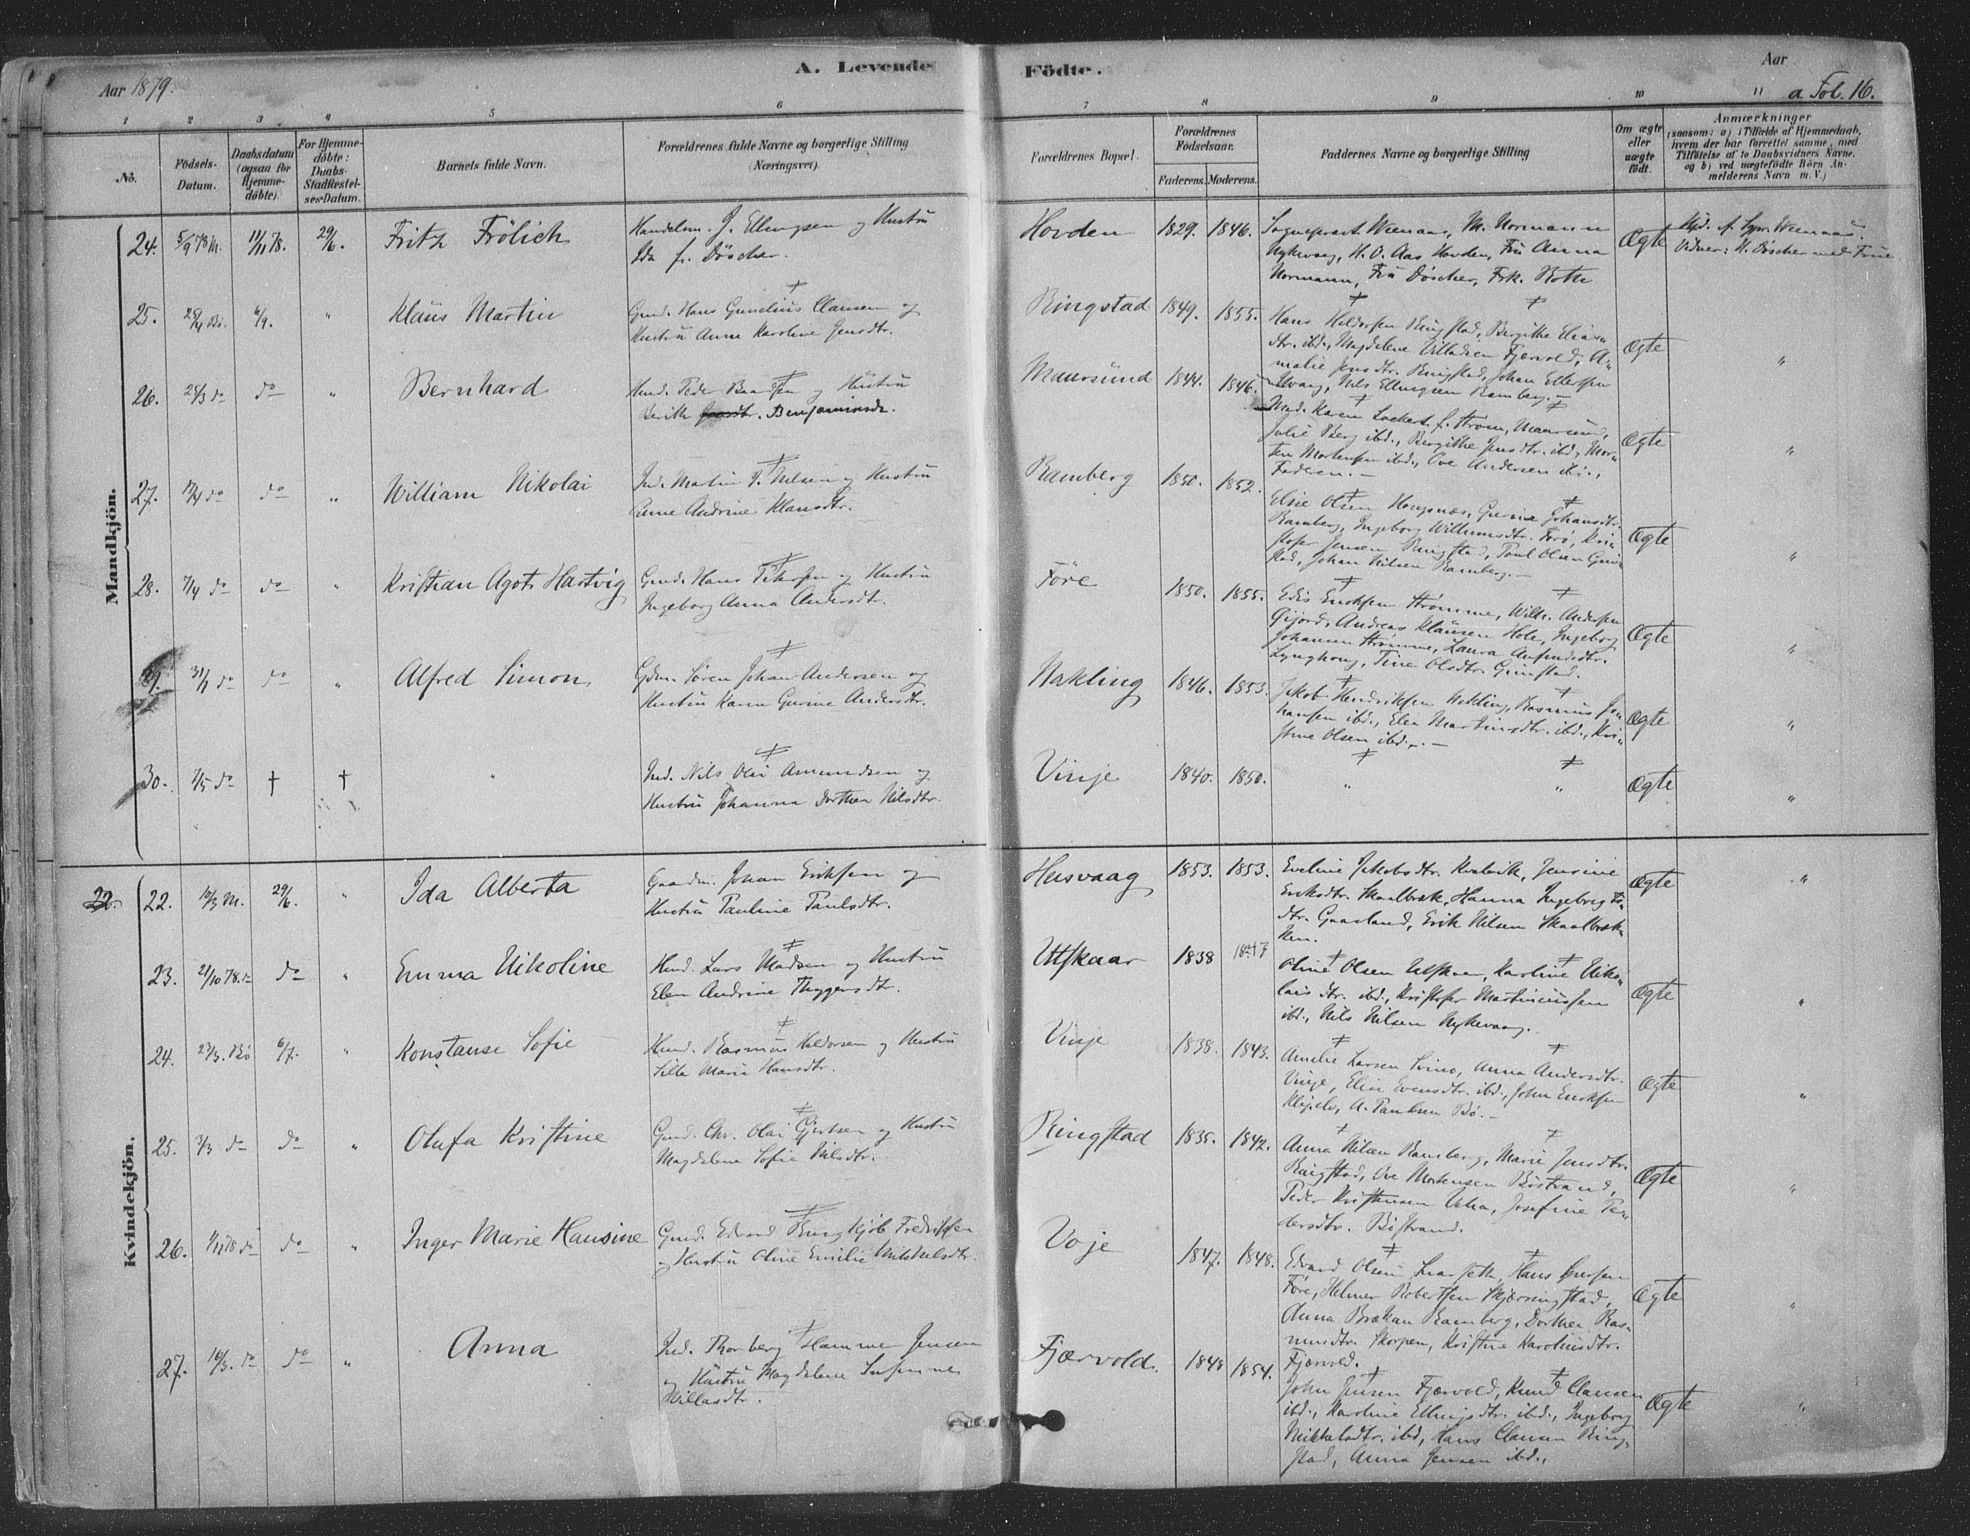 Aar 1879.
A. Levende Födte.
Aar
a Fol. 16.
1 2 3 4 5 6 7 8 9 10 11
No.
Födsels-Datum.
Daabsdatum (ogsaa for Hjemmedöbte).
For Hjemmedöbte: Daabs-Stadfæstelses-Datum.
Barnets fulde Navn.
Forældrenes fulde Navne og borgerlige Stilling (Næringsvei).
Forældrenes Bopæl.
Forældrenes Födselsaar.
Faderens. Moderens.
Faddernes Navne og borgerlige Stilling
Om ægte eller uægte födt.
Anmærkninger
(saasom: a) i Tilfælde af Hjemmedaab, hvem der har forrettet samme, med Tilföielse af to Daabsvidners Navne. og b) ved uægtefödte Börn Anmelderens Navn m. V.)
Mandkjön.
24. 5/9 78 M. 11/11 78. 29/6. Fritz Frölich
Handelsm. J. Ellingsen og Hustru
Ida f. Döscher.
Hovden 1829. 1846.
Sogneprest Weenaas, M. Normann
Nykvaag, H. O. Aas Hovden, Fru Anna
Normann, Fru Döscher, Frk. Roth
Ægte
Hjd. af Spr. Weenaas.
Vidner: H. Döscher med Frue
25. Bö. 6/9. " Klaus Martin
Gmd. Hans Gunelius Clausen og
Hustru Anna Karoline Jensdtr.
Ringstad 1849. 1855.
Hans Heldorsen Ringstad, Bergithe Elias-
dtr. ibd., Magdelene Villadsen Fjærvold, A-
malie Jensdtr. Ringstad, Johan Ellefsen
Ægte "
26. 25/3 do do " Bernhard
Hmd. Peder Baadsen og Hustru
Berith Benjaminsdr.
Maursund 1844. 1846.
Julie Berg ibd., Bergithe Jensdtr. ibd., Mor-
ten Mortensen ibd., Ove Andersen ibd.,
Faderen.
Ægte "
27. do do " William Nikolai
Ind. Martin P. Nilsen og Hustru
Anne Andrine Klausdtr.
Ramberg 1850. 1852.
Ramberg, Ingeborg Willumsdtr. Förö, Kri-
stofer Jensen Ringstad, Paul Olsen Grim-
stad, Johan Nilsen Ramberg.
Ægte "
28. 7/4 do do " Kristian Agot Hartvig
Gmd. Hans Petersen og Hustru
Ingeborg Anna Andersdtr.
Före 1850. 1855.
Edis Eriksen Strömme, Wilh. Andersen
Gjjord, Andreas Klausen Hole, Ingeborg
Johansen Strömme, Laura
Tine Olsdtr. Grimstad.
Ægte "
29. do do " Alfred Simon
Gdm. Sören Johan Andersen og
Hustru Karen Gurine Andersdtr.
Nakling 1846. 1853.
Jakob Hendriksen Nakling, Rasmus Jo-
hansen ibd., Elen Martinsdtr. ibd., Kri-
stine Olsen ibd.
Ægte "
30. 1/5 do † † "
Ind. Nils Olai Amundsen og
Hustru Johanna Dorthea Nilsdtr.
Vinje 1840. 1850. " " Ægte "
Kvindekjön.
22. 22. M. 29/6. " Ida Alberta
Gaardm. Johan Eriksen og
Hustru Pauline Paulsdtr.
Husvaag 1853. 1853.
Eveline Jakobsdtr. Kvalvik, Jensine
Eriksdtr. Skaalbrek, Hanna Ingebrigts-
dtr. Gaasland, Erik Nilsen Skaalbrek-
ken.
Ægte "
23. 21/10 78. do do " Emma Nikoline
Hmd. Lars Madsen og Hustru
Elen Andrine Thygersdtr.
Utskaar 1838 1847
Oline Olsen Utskaar, Karoline Niko-
laisdtr. ibd., Kristofer Martinussen
ibd., Nils Nilsen Nykvaag.
Ægte "
24. 23/3. Bö 6/7. " Konstanse Sofie
Hmd. Rasmus Heldorsen og Hustru
Silla Maria Hansdtr.
Vinje 1838. 1843.
Amelie Larsen Svino, Anna Andersdtr.
Vinje, Elise Evensdtr. ibd., John Eriksen
Klejvelv, A. Paulsen Bö.
Ægte "
25. 3/3 do do " Olufa Kristine
Gmd. Chr. Olai Gjertsen og Hustru
Magdelene Sofie Nilsdtr.
Ringstad 1835. 1842.
Anna Nilsen Ramberg, Marie Jensdtr.
Ringstad, Ove Mortensen Böstrand,
Peder Kristensen Josefine Pe-
dersdtr. Böstrand.
Ægte "
26. do do " Inger Marie Hansine
Gmd. Edvard Bing Kjöb Fredriksen
og Hustru Oline Emilie Mikkelsdtr.
Voje 1847. 1848.
Edvard Olsen Hans Iversen
Före, Helmer Robertsen Skjærringstad,
Anna Brekan Ramberg, Dorthea Ras-
musdtr. Skorpen, Kristine Karolinsdtr.
Fjærvold.
Ægte "
27. 16/3. do do " Anna
Ind. Thorberg Hammer Jensen
og Hustru Magdelene Susanne
Willasdtr.
Fjærvold. 1848 1854.
John Jensen Fjærvold, Knud Clausen
ibd., Karoline Ellingsdtr. ibd., Ingeborg
Mikkelsdtr. ibd., Hans Clausen Ring-
stad, Anna Jensen ibd.,
Ægte "